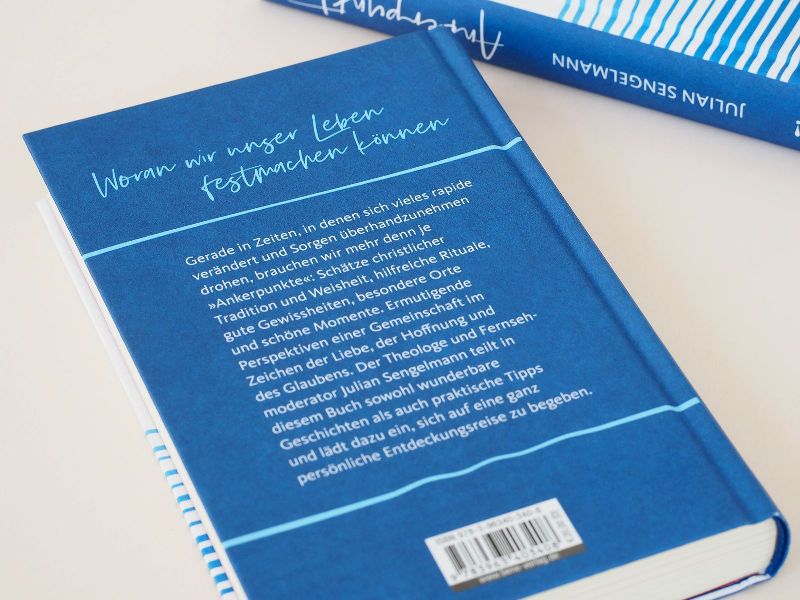 JULIAN SENGELMANN
Woran wir unser Leben
festmachen können
Gerade in Zeiten, in denen sich vieles rapide
verändert und Sorgen überhandzunehmen
drohen, brauchen wir mehr denn je
»Ankerpunkte«: Schätze christlicher
Tradition und Weisheit, hilfreiche Rituale,
gute Gewissheiten, besondere Orte
und schöne Momente. Ermutigende
Perspektiven einer Gemeinschaft im
Zeichen der Liebe, der Hoffnung und
des Glaubens. Der Theologe und Fernseh-
moderator Julian Sengelmann teilt in
diesem Buch sowohl wunderbare
Geschichten als auch praktische Tipps
und lädt dazu ein, sich auf eine ganz
persönliche Entdeckungsreise zu begeben.
ISBN 978-3-96340-340-8